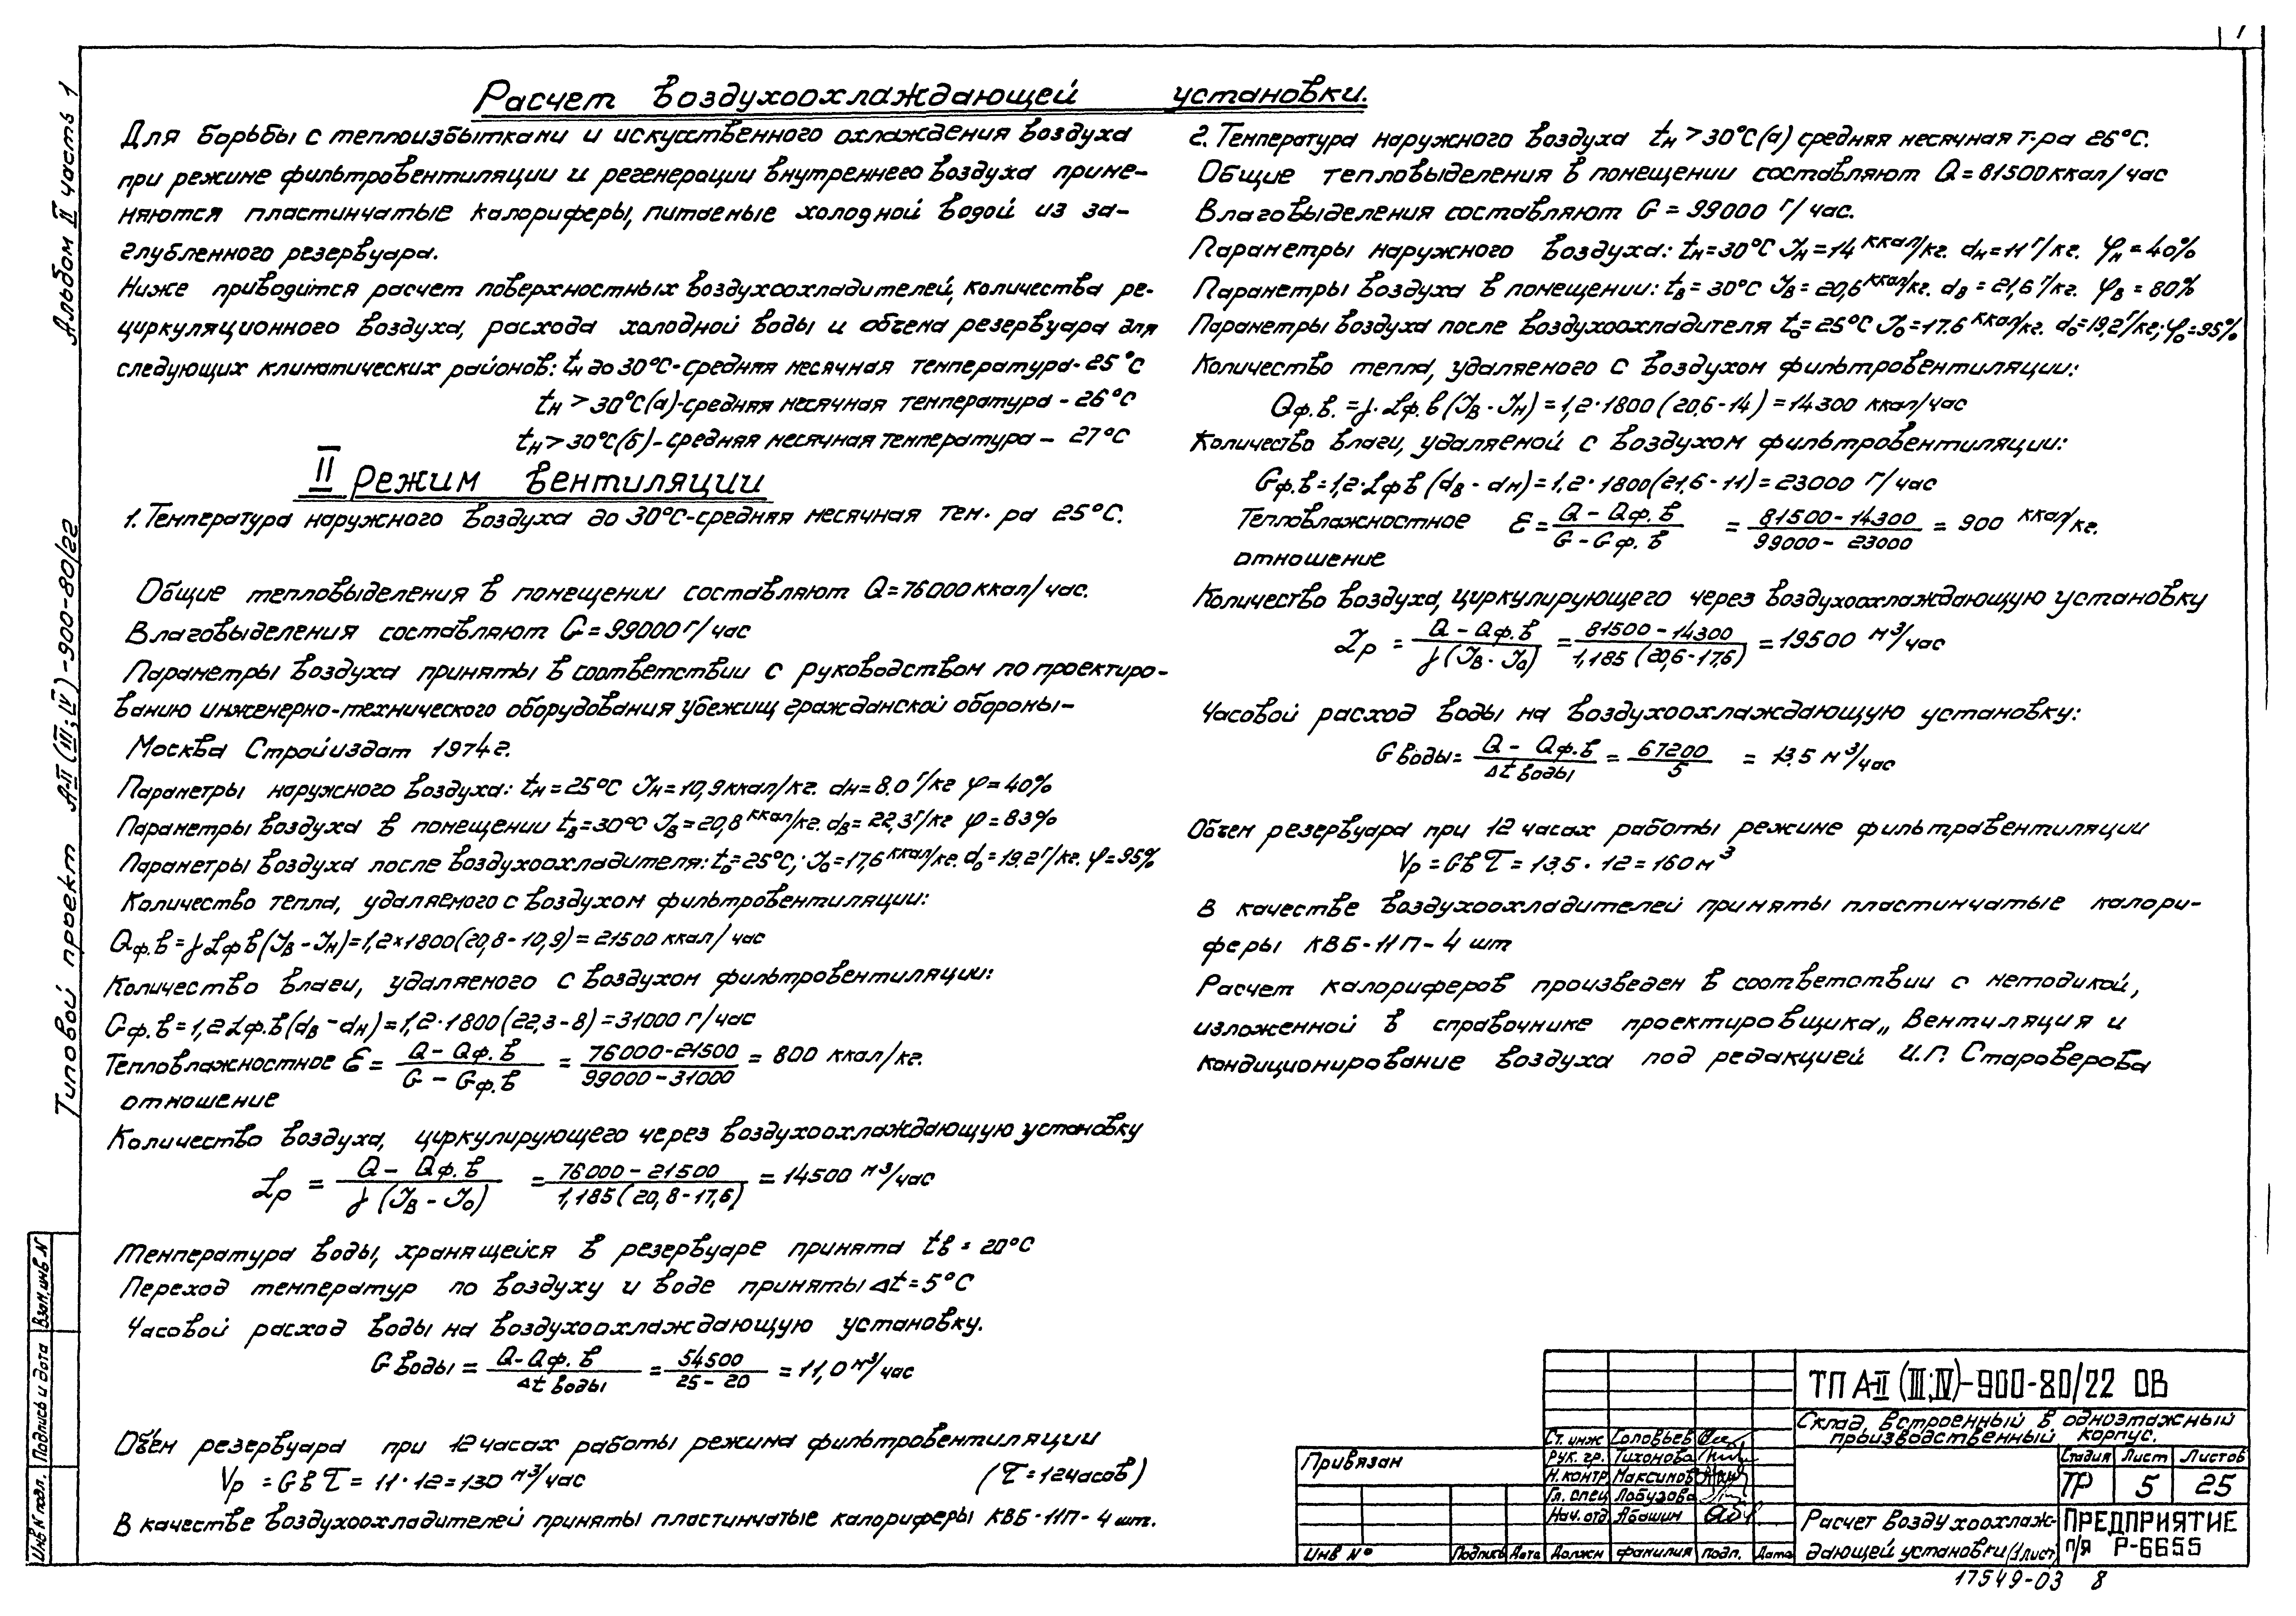 Расчет воздухоохлаждающей установки.
Для борьбы с теплоизбытками и искусственного охлаждения воздуха
при режиме фильтровентиляции и регенерации внутреннего воздуха приме-
няются пластинчатые калориферы, питаемые холодной водой из за-
глубленного резервуара.
Ниже приводится расчет поверхностных воздухоохладителей, количества ре-
циркуляционного воздуха, расхода холодной воды и объема резервуара для
следующих климатических районов: tн до 30°С - средняя месячная температура - 25°С
tн > 30°С(а) - средняя месячная температура - 26°С
tн > 30°С(б) - средняя месячная температура - 27°С
II режим вентиляции
1. Температура наружного воздуха до 30°С - средняя месячная тем-ра 25°С.
Общие тепловыделения в помещении составляют Q = 76000 ккал/час.
Влаговыделения составляют G = 99000 г/час
Параметры воздуха приняты в соответствии с руководством по проектиро-
ванию инженерно-технического оборудования убежищ гражданской обороны-
Москва Стройиздат 1974г.
Параметры наружного воздуха: tн = 25°С Jн = 10,9 ккал/кг. dн = 8.0 г/кг φ = 40%
Параметры воздуха в помещении tв = 30°С Jв = 20,8 ккал/кг. dв = 22,3 г/кг φ = 83%
Параметры воздуха после воздухоохладителя: tо = 25°С; Jо = 17,6 ккал/кг. dо = 19.2 г/кг. φ = 95%
Количество тепла, удаляемого с воздухом фильтровентиляции:
Qф.в = γ Lф в (Jв - Jн) = 1,2 × 1800 (20,8 - 10,9) = 21500 ккал/час
Количество влаги, удаляемого с воздухом фильтровентиляции:
Gф.в = 1,2 Lф.в (dв - dн) = 1,2 · 1800 (22,3 - 8) = 31000 г/час
Тепловлажностное ε = (Q - Qф.в)/(G - Gф.в) = (76000 - 21500)/(99000 - 31000) = 800 ккал/кг.
отношение
Количество воздуха, циркулирующего через воздухоохлаждающую установку
Lр = (Q - Qф.в)/(γ (Jв - Jо)) = (76000 - 21500)/(1,185 (20,8 - 17,6)) = 14500 м³/час
Температура воды, хранящейся в резервуаре принята tв = 20°С
Переход температур по воздуху и воде приняты Δt = 5°С
Часовой расход воды на воздухоохлаждающую установку.
G воды = (Q - Qф.в)/(Δt воды) = 54500/(25 - 20) = 11,0 м³/час
Объем резервуара при 12 часах работы режима фильтровентиляции
Vр = Gв τ = 11 · 12 = 130 м³/час (τ = 12 часов)
В качестве воздухоохладителей приняты пластинчатые калориферы КВБ-11П - 4 шт.
2. Температура наружного воздуха tн > 30°С(а) средняя месячная т-ра 26°С.
Общие тепловыделения в помещении составляют Q = 81500 ккал/час
Влаговыделения составляют G = 99000 г/час.
Параметры наружного воздуха: tн = 30°С Jн = 14 ккал/кг. dн = 11 г/кг. φн = 40%
Параметры воздуха в помещении: tв = 30°С Jв = 20,6 ккал/кг. dв = 21,6 г/кг. φв = 80%
Параметры воздуха после воздухоохладителя tо = 25°С Jо = 17.6 ккал/кг. dо = 19,2 г/кг; φо = 95%
Количество тепла, удаляемого с воздухом фильтровентиляции:
Qф.в. = γ · Lф.в (Jв - Jн) = 1,2 · 1800 (20,6 - 14) = 14300 ккал/час
Количество влаги, удаляемой с воздухом фильтровентиляции:
Gф.в = 1,2 · Lф в (dв - dн) = 1,2 · 1800 (21,6 - 11) = 23000 г/час
Тепловлажностное ε = (Q - Qф.в)/(G - Gф.в) = (81500 - 14300)/(99000 - 23000) = 900 ккал/кг.
отношение
Количество воздуха, циркулирующего через воздухоохлаждающую установку
Lр = (Q - Qф.в)/(γ (Jв - Jо)) = (81500 - 14300)/(1,185 (20,6 - 17,6)) = 19500 м³/час
Часовой расход воды на воздухоохлаждающую установку:
G воды = (Q - Qф.в)/(Δt воды) = 67200/5 = 13.5 м³/час
Объем резервуара при 12 часах работы режиме фильтравентиляции
Vр = Gв τ = 13.5 · 12 = 160 м³
В качестве воздухоохладителей приняты пластинчатые калори-
феры КВБ-11П - 4 шт
Расчет калориферов произведен в соответствии с методикой,
изложенной в справочнике проектировщика „Вентиляция и
кондиционирование воздуха под редакцией И.Г. Староверова
Типовой проект А-II (III; IV) - 900-80/22 Альбом II часть 1
Инв N подл. Подпись и дата Взам. инв N
Привязан
Инв №
Подпись Дата Должн фамилия подп. Дата
Ст. инж Соловьев
Рук. гр. Тихонова
Н. контр Максимов
Гл. спец Лобузова
Нач. отд Абашин
ТП А-II (III; IV) - 900-80/22 ОВ
Склад, встроенный в одноэтажный
производственный корпус.
Стадия Лист Листов
ТР 5 25
Расчет воздухоохлаж-
дающей установки (1 лист)
ПРЕДПРИЯТИЕ
п/я Р-6655
17549-03 8